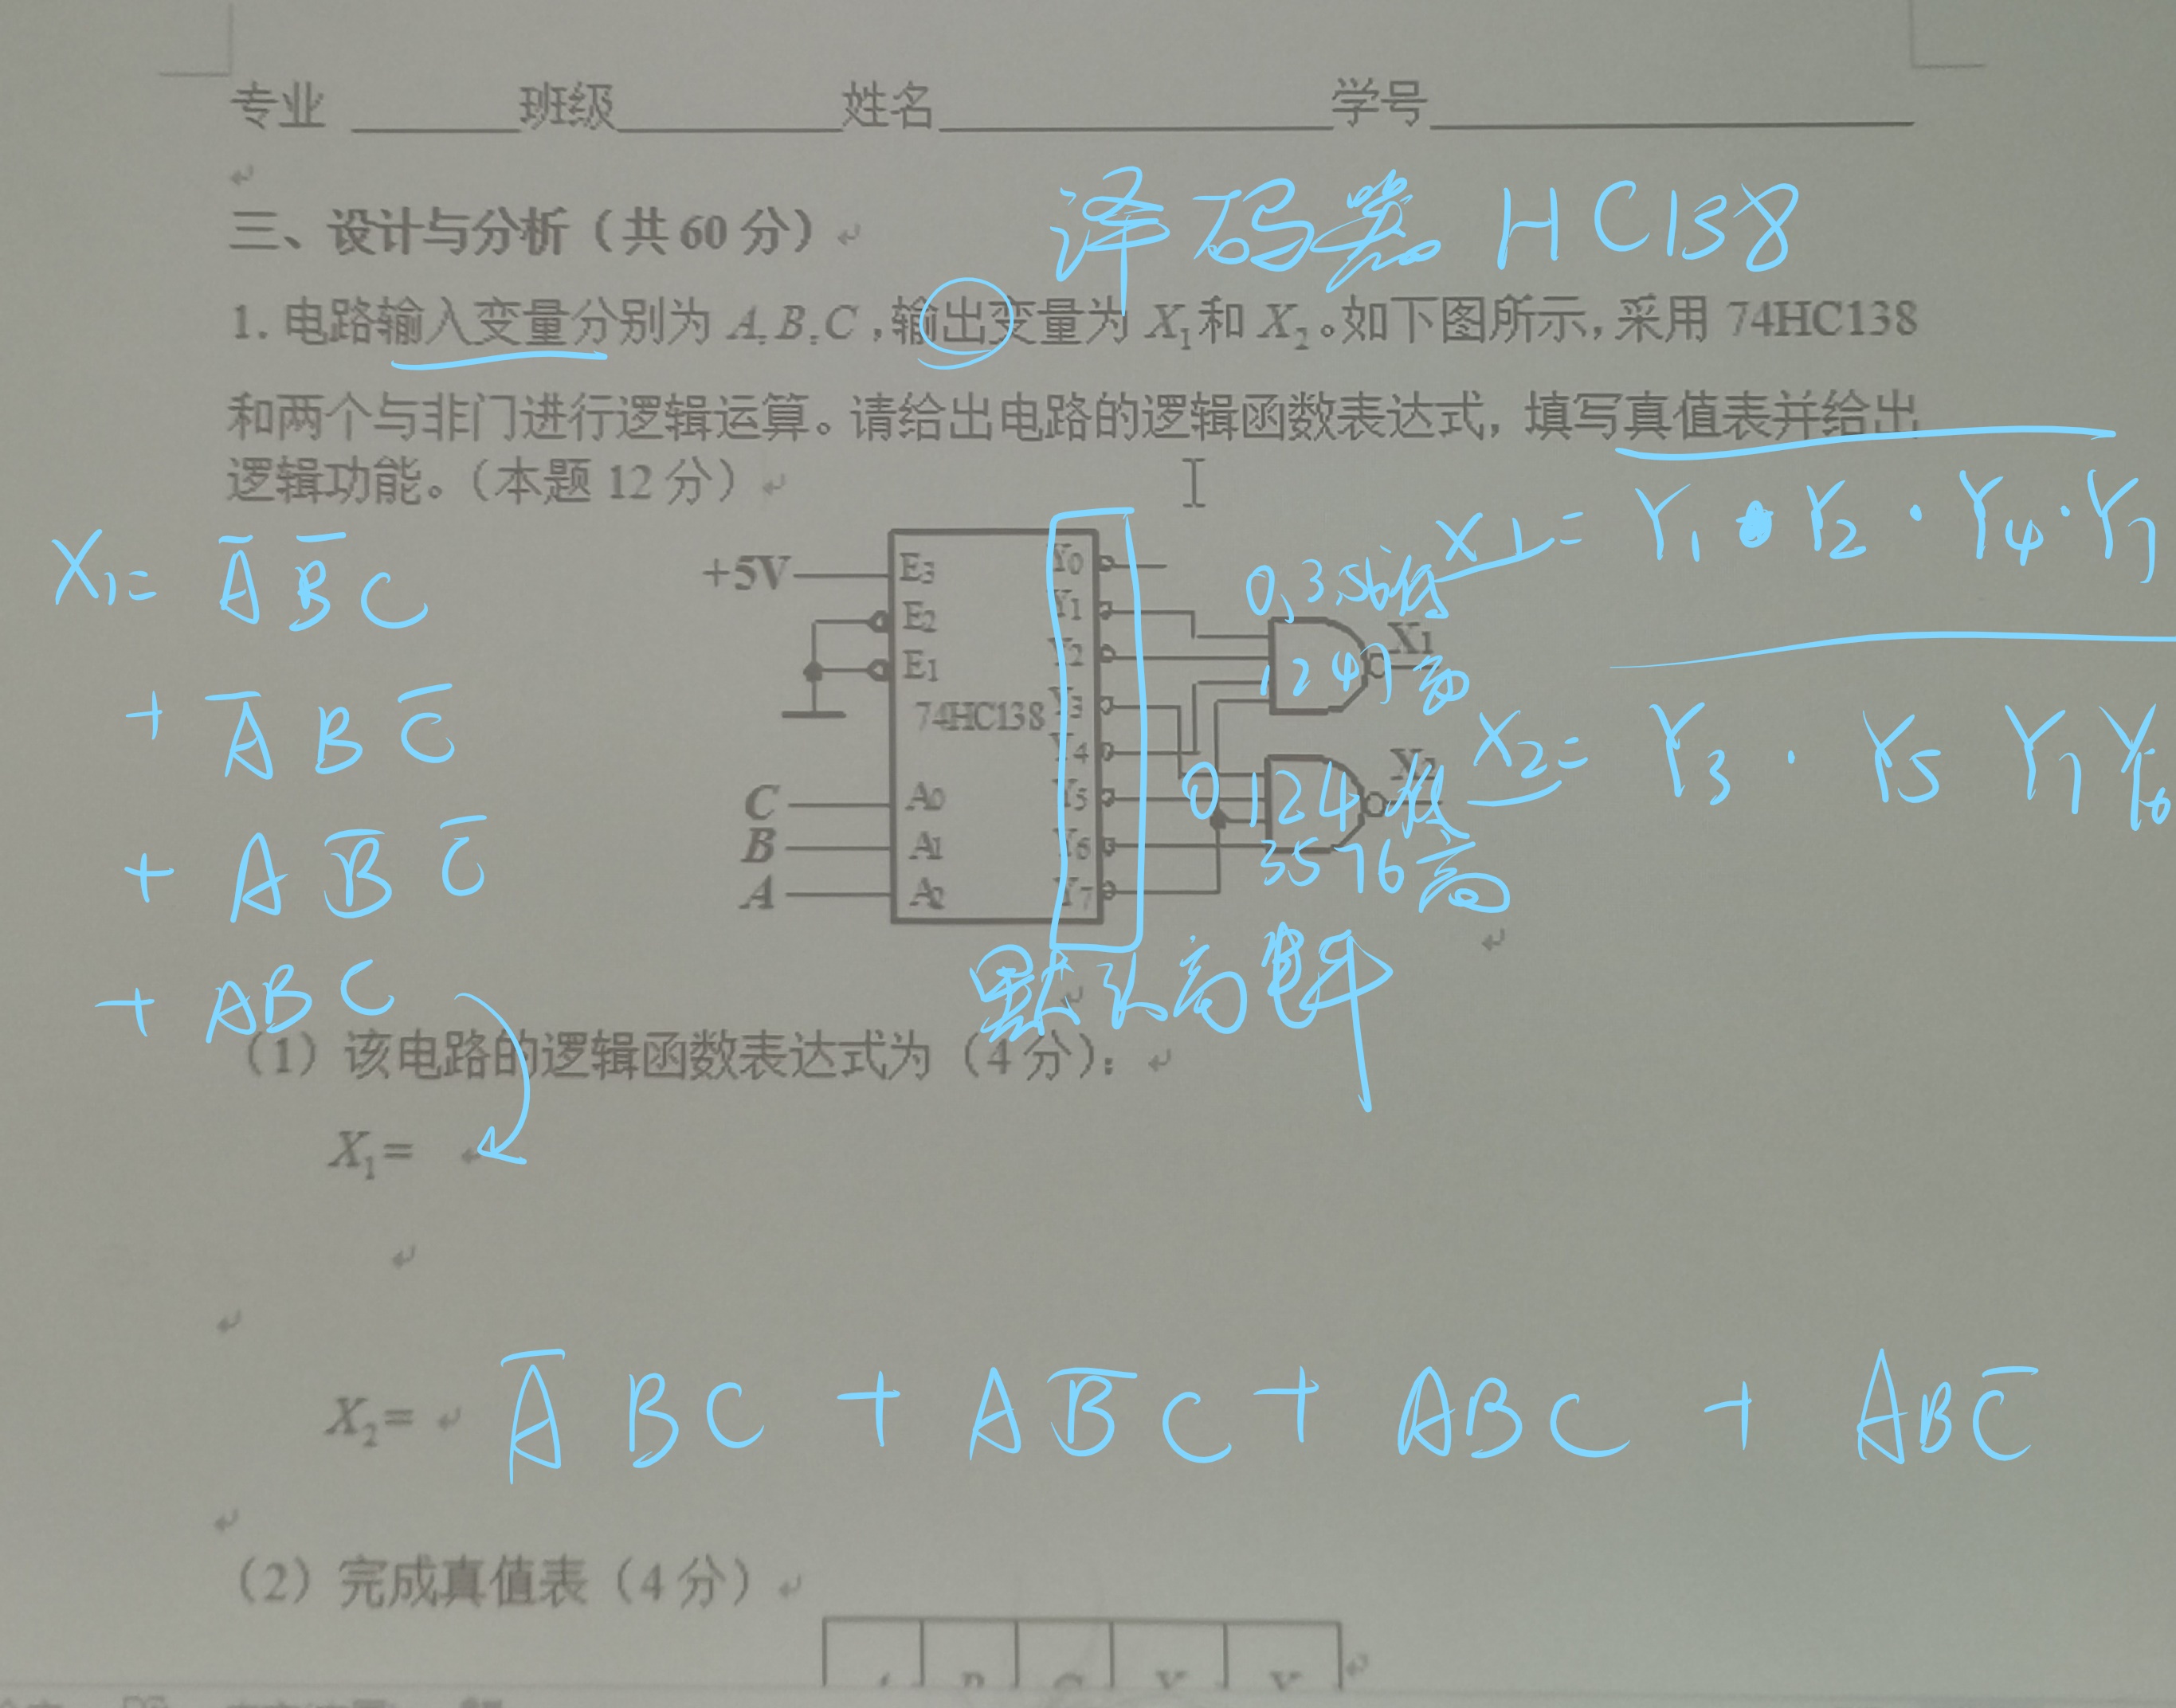 专业 ______班级________姓名______________学号_________________
三、设计与分析（共 60 分）
译码器 HC138
1. 电路输入变量分别为 A, B, C ,输出变量为 X₁和 X₂。如下图所示,采用 74HC138
和两个与非门进行逻辑运算。请给出电路的逻辑函数表达式，填写真值表并给出
逻辑功能。（本题 12 分）
X1 = Y₁ · Y₂ · Y₄ · Y₇
X₁= A̅ B̅ C
+ A̅ B C̅
+ A B̅ C̅
+ A B C
+5V
E3
E2
E1
74HC138
C
B
A
A0
A1
A2
Y0
Y1
Y2
Y3
Y4
Y5
Y6
Y7
0,3,56低
1247高
X1
X₂= Y₃ · Y₅ Y₇ Y₆
0124低
3576高
默认高电平
（1）该电路的逻辑函数表达式为（4 分）：
X₁=
X₂= A̅ B C + A B̅ C + A B C + A B C̅
（2）完成真值表（4 分）